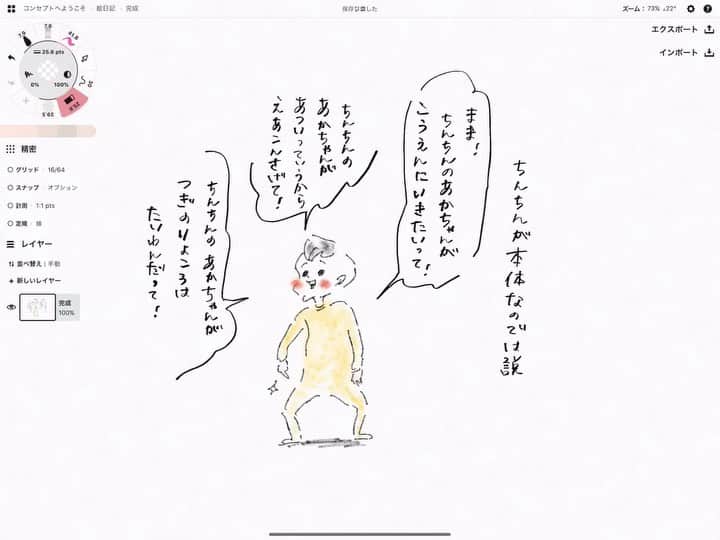 コンセプトへようこそ
絵日記
完成
保存されました
ズーム: 73%
22°
エクスポート
インポート
7.5
7.8
25.8 pts
0%
100%
29.5
精密
グリッド
16/64
スナップ
オプション
計測
1:1 pts
定規
線
レイヤー
並べ替え
手動
+ 新しいレイヤー
完成
100%
ちんちんが本体なのでは説
まま!
ちんちんのあかちゃんが
こうえんにいきたいって!
ちんちんの
あかちゃんが
あついっていうから
えあこんさげて!
ちんちんのあかちゃんが
つぎのりょこうは
たいわんだって!